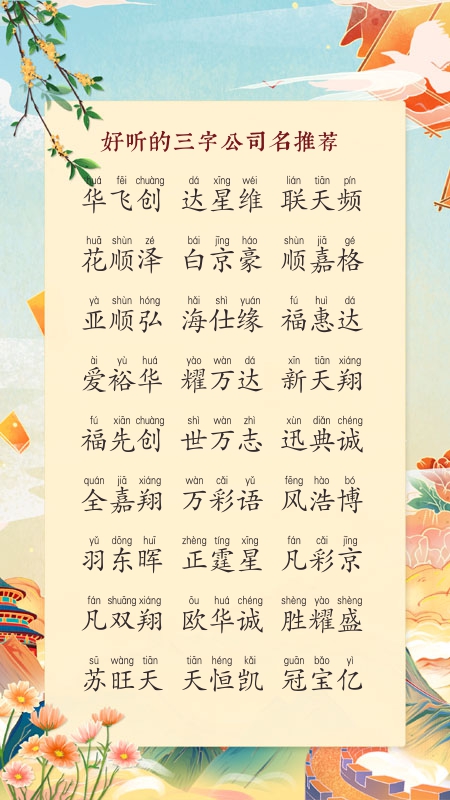 好听的三字公司名推荐
huá fēi chuàng dá xīng wéi lián tiān pín
华飞创 达星维 联天频
huā shùn zé bái jīng háo shùn jiā gé
花顺泽 白京豪 顺嘉格
yà shùn hóng hǎi shì yuán fú huì dá
亚顺弘 海仕缘 福惠达
ài yù huá yào wàn dá xīn tiān xiáng
爱裕华 耀万达 新天翔
fú xiān chuàng shì wàn zhì xùn diǎn chéng
福先创 世万志 迅典诚
quán jiā xiáng wàn cǎi yǔ fēng hào bó
全嘉翔 万彩语 风浩博
yǔ dōng huī zhèng tíng xīng fán cǎi jīng
羽东晖 正霆星 凡彩京
fán shuāng xiáng ōu huá chéng shèng yào shèng
凡双翔 欧华诚 胜耀盛
sū wàng tiān tiān héng kǎi guān bǎo yì
苏旺天 天恒凯 冠宝亿